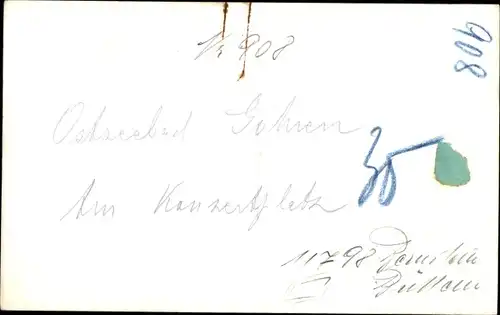 Nr 908
908
Ostseebad Göhren
Am Konzertplatz
30
11798